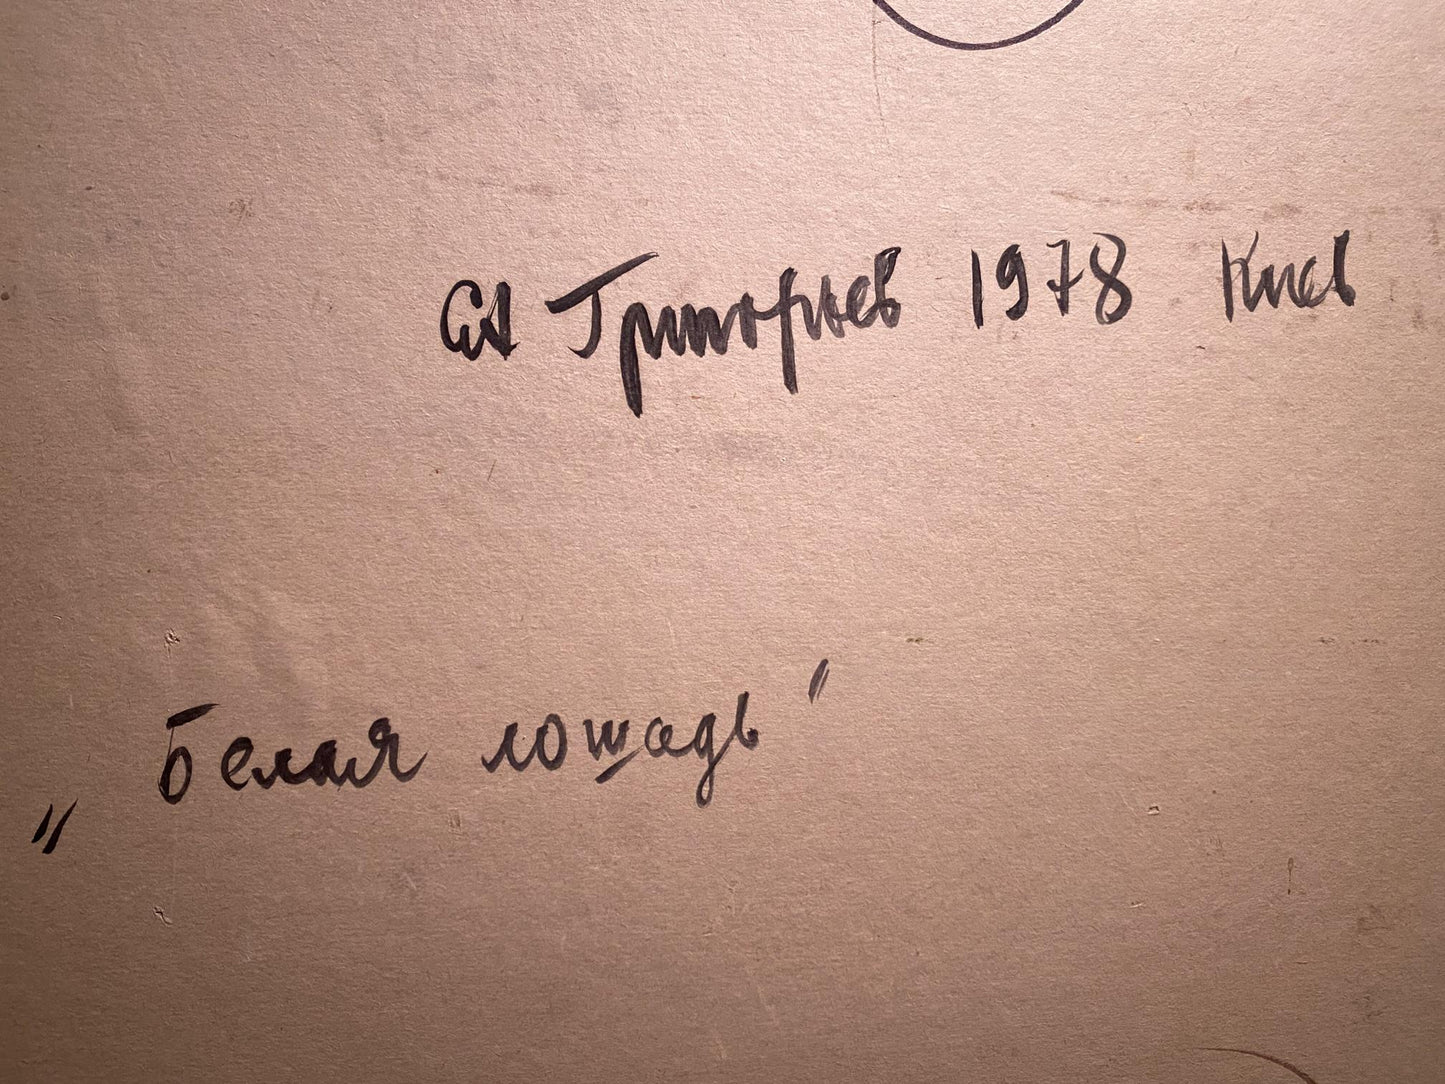 СА Григорьев 1978 Киев
„Белая лошадь"